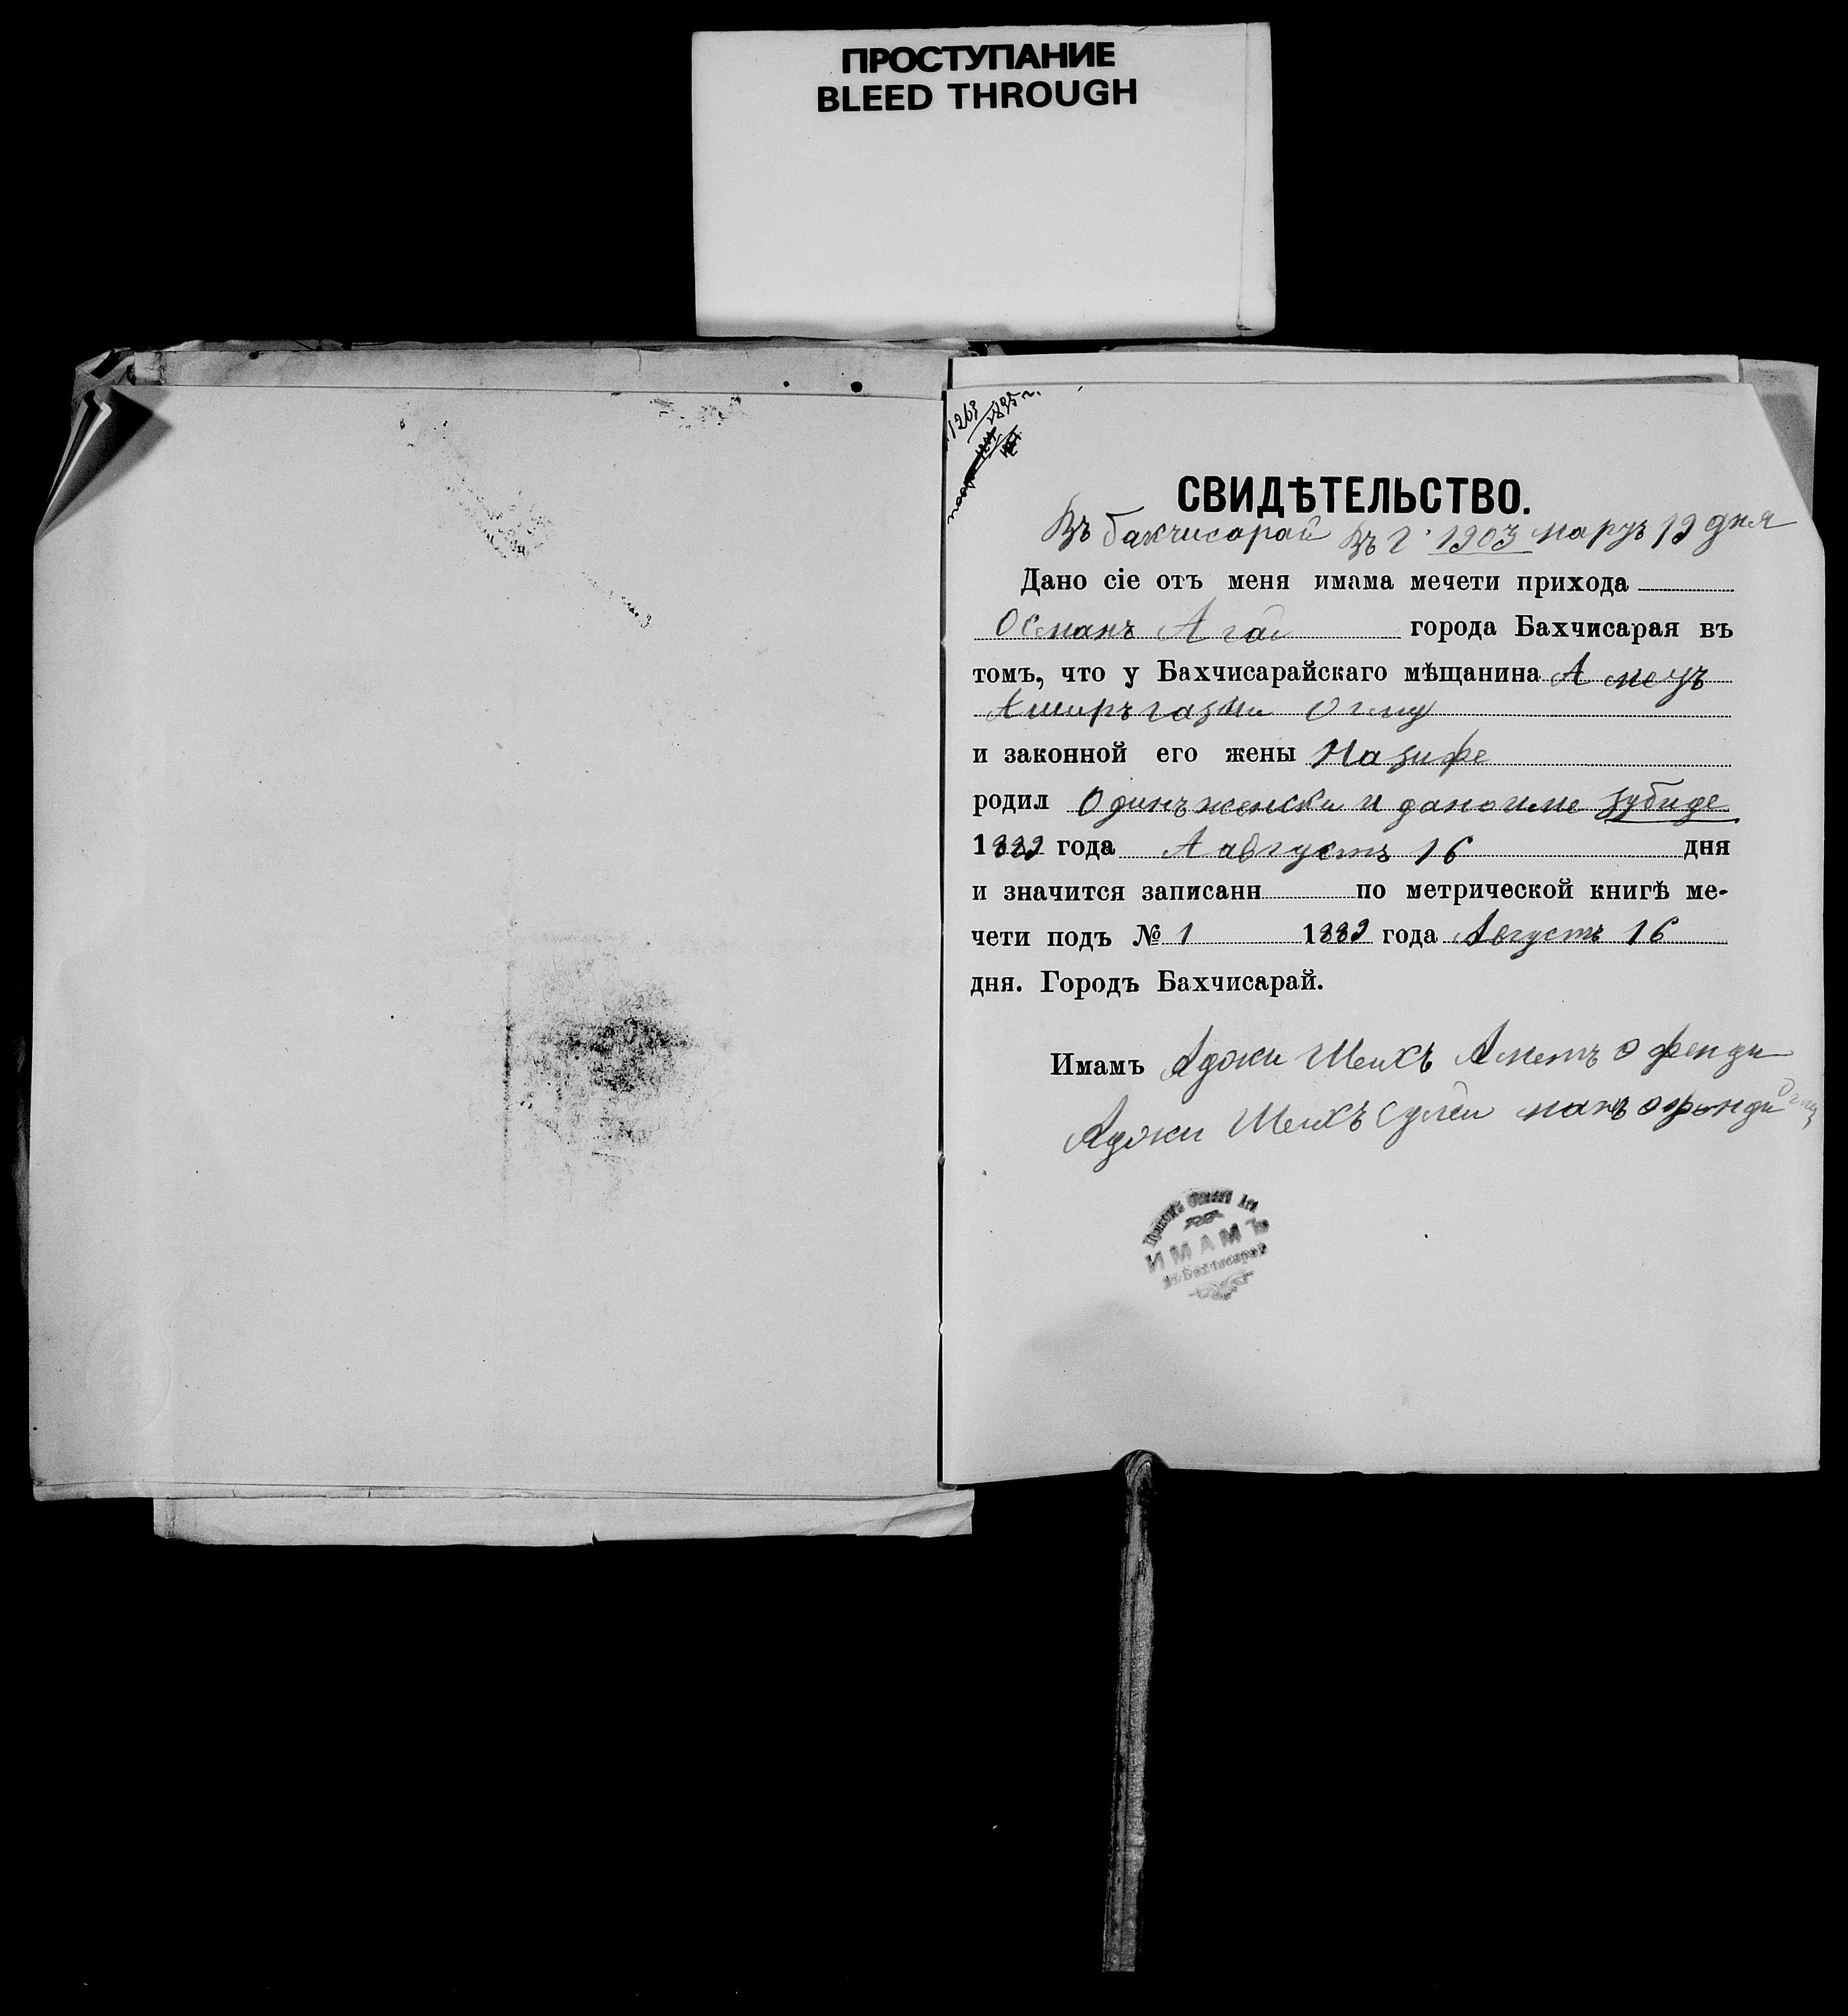 ПРОСТУПАНИЕ
BLEED THROUGH
1263
1895 г.
СВИДѢТЕЛЬСТВО.
Въ бакчисарай въ г. 1903 марзъ 19 дня
Дано сіе отъ меня имама мечети прихода
Османъ Агаи города Бахчисарая въ
томъ, что у Бахчисарайскаго мѣщанина Амезъ
Аширъ гази Оглу
и законной его жены Назифе
родил Одинъ женски и дано име Зубиде
1889 года Аавгустъ 16 дня
и значится записанн по метрической книгѣ ме-
чети подъ № 1 1889 года Августъ 16
дня. Городъ Бахчисарай.
Имамъ Аджи Шеихъ Аметъ Эфенди
Аджи Шеихъ Сулеиманъ эфенди
Приходъ Османъ Ага
ИМАМЪ
въ Бахчисарай